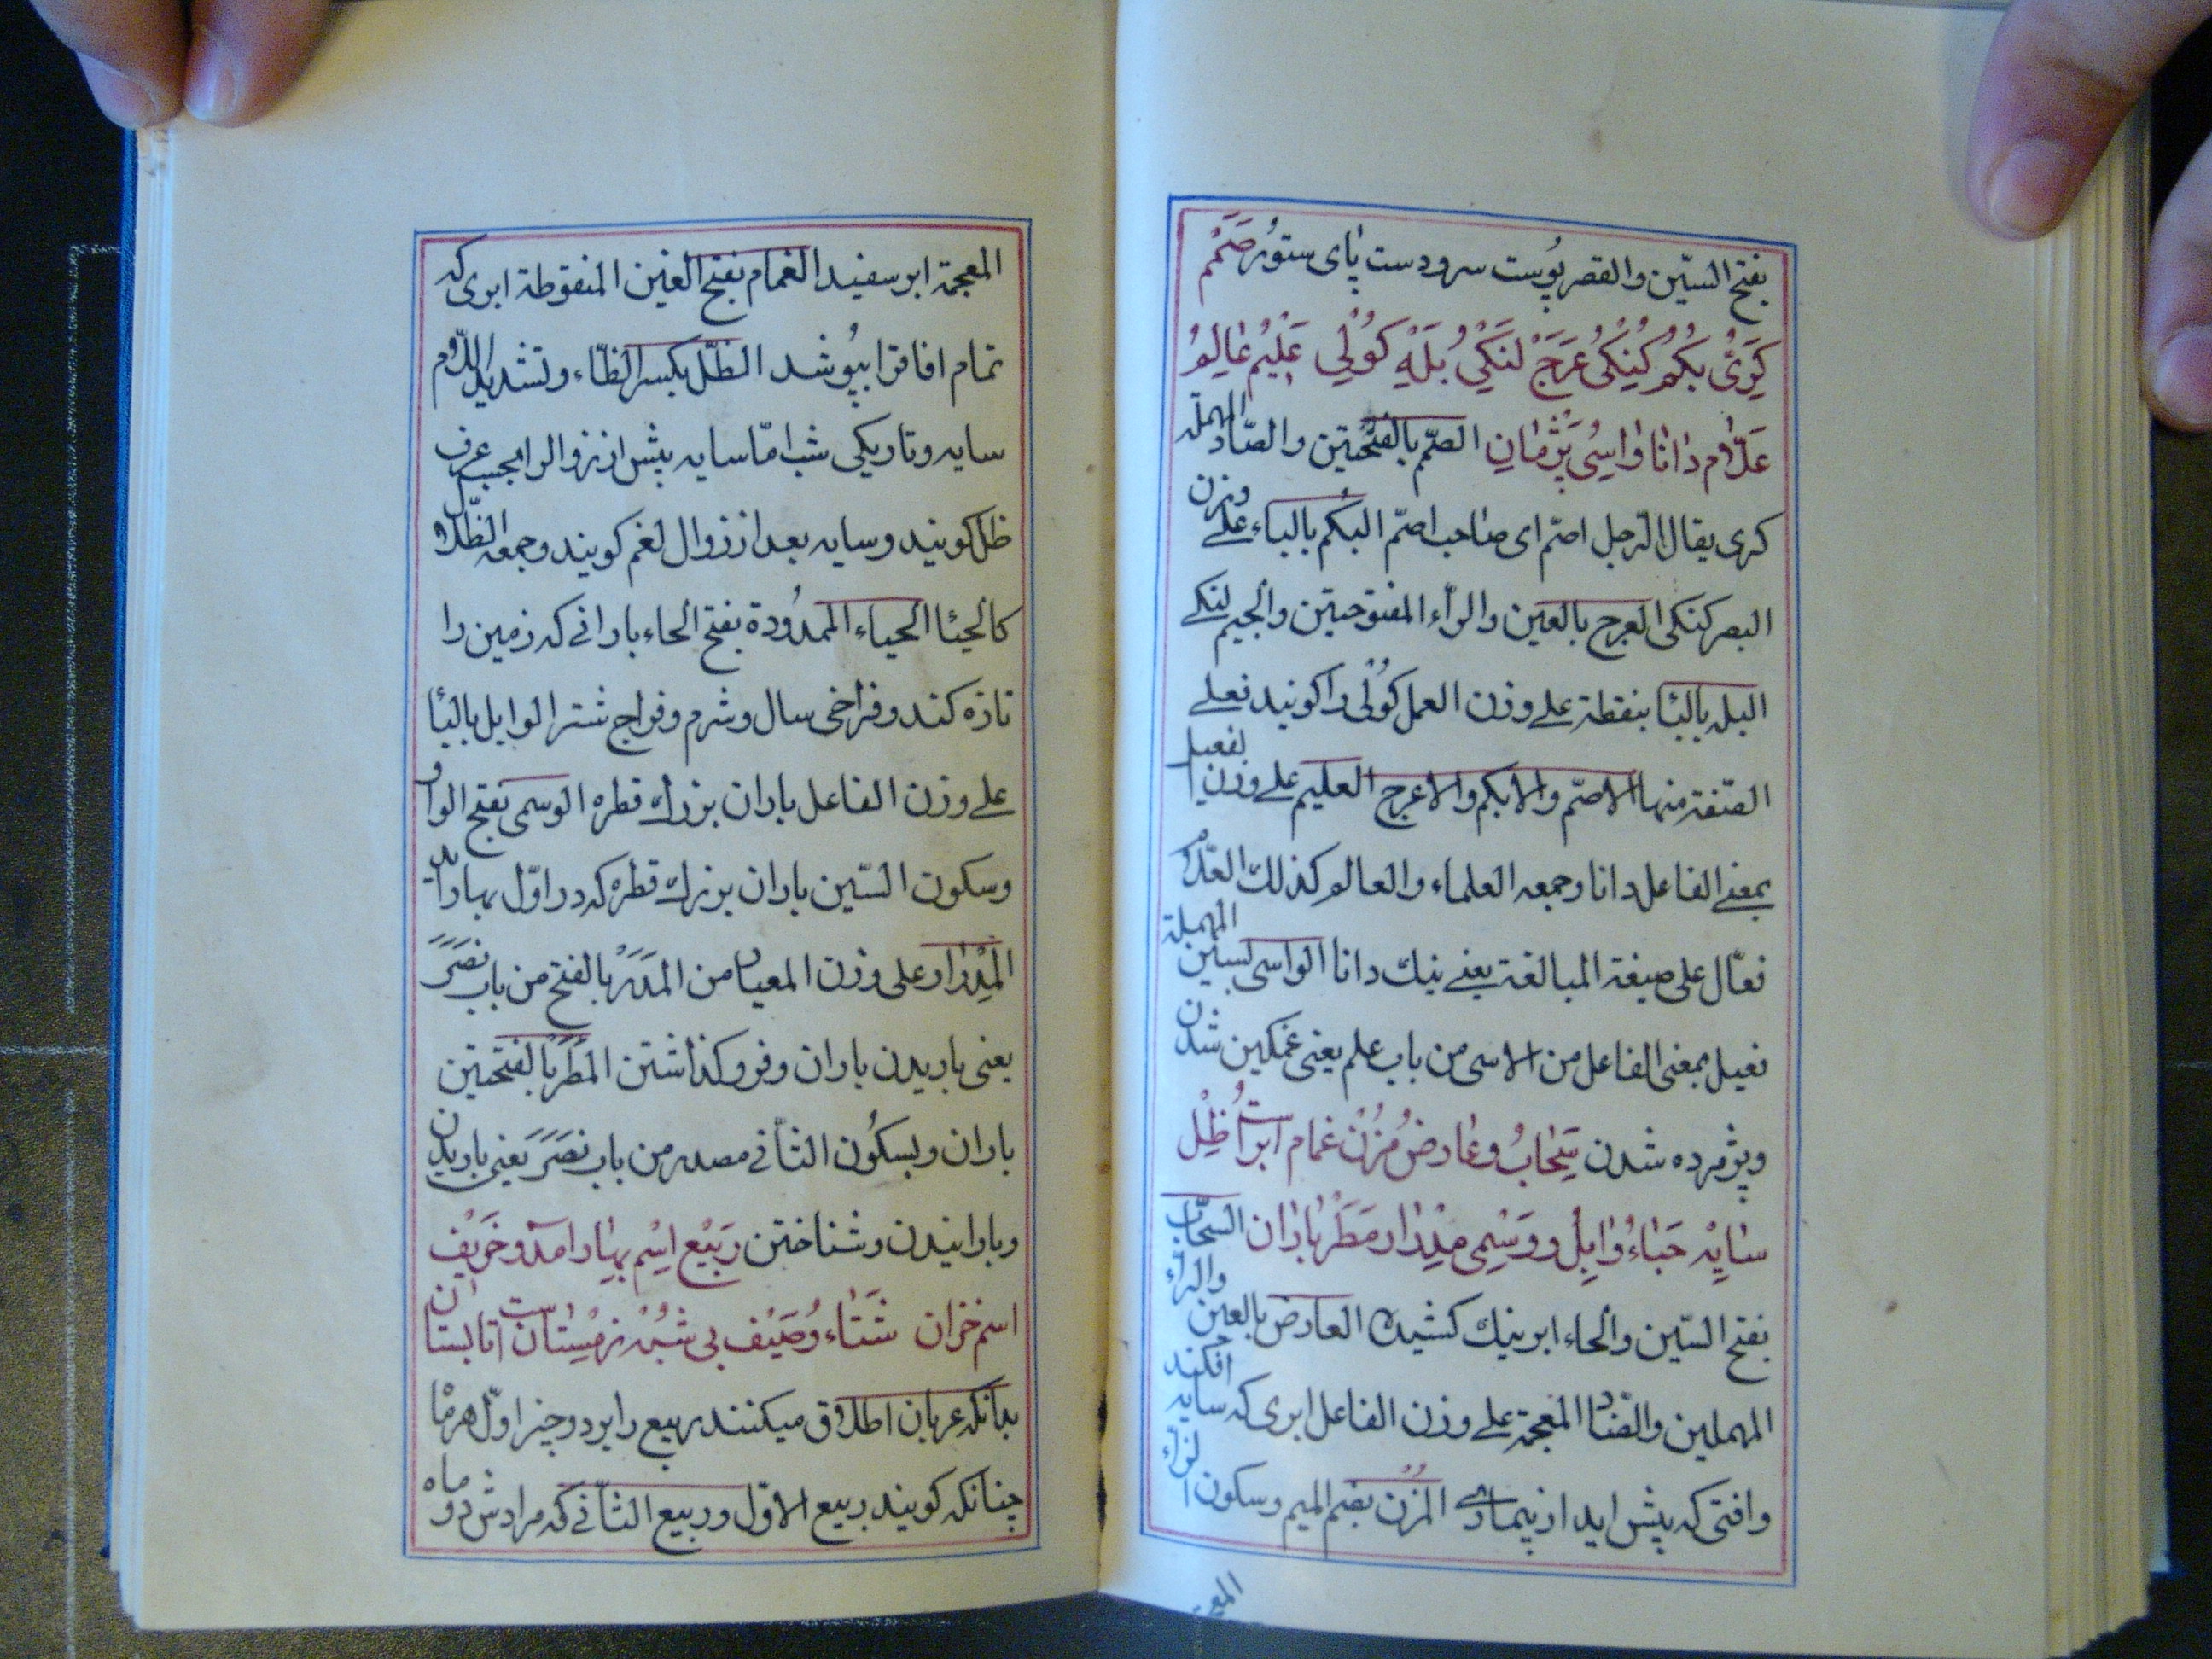 بفتح السّین والقصر پُوست سرو دست پای ستوُر صَمَمْ
کَرِیُّ بُکُمْ کُنِکیُ عَرَجَ لَنکِیُ بُلَهْ کُوُلِی عَلِیْمُ عٰالِمُ
عَلّام دٰانٰا وٰاسِی پَژْمٰانِ الصّمم بالفتحتین والصّاد المهملة
کری یقال الرّجل اصمّ ای صٰاحب اصمّ البکم بالباء علی وزن
البصر کنکی العرج بالعین والرّاء المفتوحتین والجیم لنکی
البله بالبٰا بنقطة علی وزن العمل کوُلُی را کویند فعلی
الصّفة منها الاصمّ والابکم والاعرج العلیم علی وزن الفعیل
بمعنی الفاعل دانا وجمعه العلماء والعالم کذلك العلّام
فعّال علی صیغة المبالغة یعنی نیك دانا الواسی لسین المهملة
فعیل بمعنی الفاعل من الاسی من باب علم یعنی غمکین شدن
وپژمرده شدن سَحٰابُ وعٰارضُ مُزُنْ غمام ابراست ظِلْ
سٰایِهْ حَیٰاءُ وٰابِلْ وَوَسْمِی مِدْرٰار مَطَرْ بٰارٰان السّحٰاب
بفتح السّین والحاء ابر نیك کشیده العارض بالعین والرّاء
المهملین والضٰاد المعجمة علی وزن الفاعل ابری که سایه افکند
وافتی که پیش اید از بیماری المزن بضم المیم وسکون الزاء
المعجمة ابر سفید الغمام بفتح الغین المنقوطة ابری که
تمام افاقرا بپُوشد الظّل بکسر الظّاء وتشدید اللّام
سایه وتاریکی شب امّا سایه پیش از زوالرا بحسب عرف
ظل کویند وسایه بعد از زوال لغم کویند وجمعه الظّلال
کالحیٰا الحیاء الممدُودة بفتح الحاء بارانی که زمین را
تازه کند وفراخی سال وشرم وفراج شتر الوابل بالبٰا
علی وزن الفاعل باران بزرك قطره الوسمی بفتح الواو
وسکون السّین باران بزرك قطره که در اوّل بهار
المِدْرٰار علی وزن المعیار من المَدَرْ بالفتح من باب نَصَرَ
یعنی باریدن باران وفروکذاشتن المَطَرْ بالفتحتین
باران وبسکُون الثٰانی مصدر من باب نَصَرَ یعنی باریدن
وبارانیدن وشناختن رَبیْع اِسْمِ بهٰار امدو خَرِیْف
اسم خزان شَتٰاء وُصَیْف بی شُبْهْ زمِسْتٰان است تابستان
بدانکه عربان اطلاق میکنند ربیع را بر دو چیز اوّل هر مٰا
چنانکه کویند ربیع الاوّل وربیع الثٰانی که مرادش دو ماه